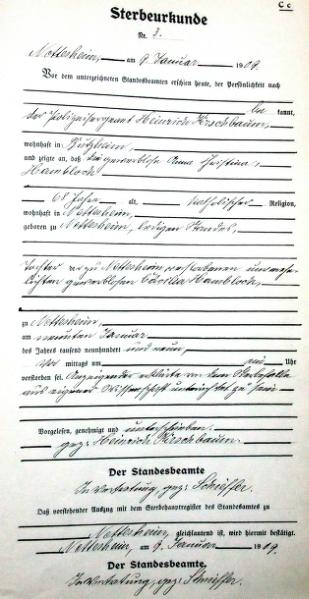 C c
Sterbeurkunde
Nr. 3.
Nettersheim, am 9. Januar 1909.
Vor dem unterzeichneten Standesbeamten erschien heute, der Persönlichkeit nach
be kannt,
der Polizeisergeant Heinrich Kirschbaum,
wohnhaft in
und zeigte an, daß die gewerblose Anna Christina
Hambloch
68 Jahre alt, katholischer Religion,
wohnhaft in Nettersheim,
geboren zu Nettersheim, ledigen Standes,
Tochter der zu Nettersheim verstorbenen unverehe-
lichten gewerblosen Cäcilia Hambloch,
zu Nettersheim,
am neunten Januar
des Jahres tausend neunhundert und neun,
Vor mittags um Uhr
verstorben sei. Anzeigender erklärte von dem Sterbefalle
aus eigener Wissenschaft unterrichtet zu sein
Vorgelesen, genehmigt und unterschrieben.
gez: Heinrich Kirschbaum.
Der Standesbeamte
In Vertretung, gez: Schieffer.
Daß vorstehender Auszug mit dem Sterbehauptregister des Standesamts zu
Nettersheim, gleichlautend ist, wird hiermit bestätigt.
Nettersheim, am 9. Januar 1909.
Der Standesbeamte.
In Vertretung, gez: Schieffer.